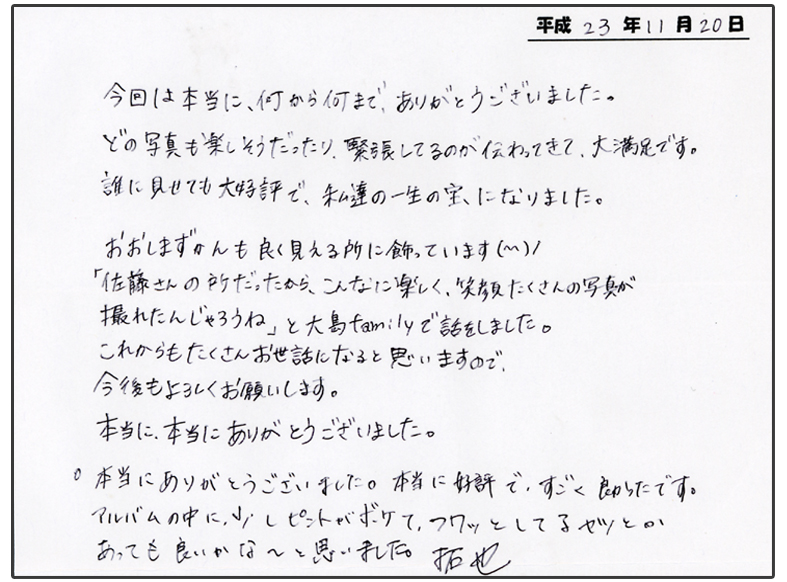 平成 23 年 11 月 20 日
今回は本当に、何から何まで、ありがとうございました。
どの写真も楽しそうだったり、緊張してるのが伝わってきて、大満足です。
誰に見せても大好評で、私達の一生の宝、になりました。
おおしまずかんも良く見える所に飾っています(^^)/
「佐藤さんの所だったから、こんなに楽しく、笑顔たくさんの写真が
撮れたんじゃろうね」と大島familyで話をしました。
これからもたくさんお世話になると思いますので、
今後もよろしくお願いします。
本当に、本当にありがとうございました。
○ 本当にありがとうございました。本当に好評で、すごく良かったです。
アルバムの中に、少しピントがボケて、フワッとしてるヤツとか
あっても良いかな〜と思いました。 拓也